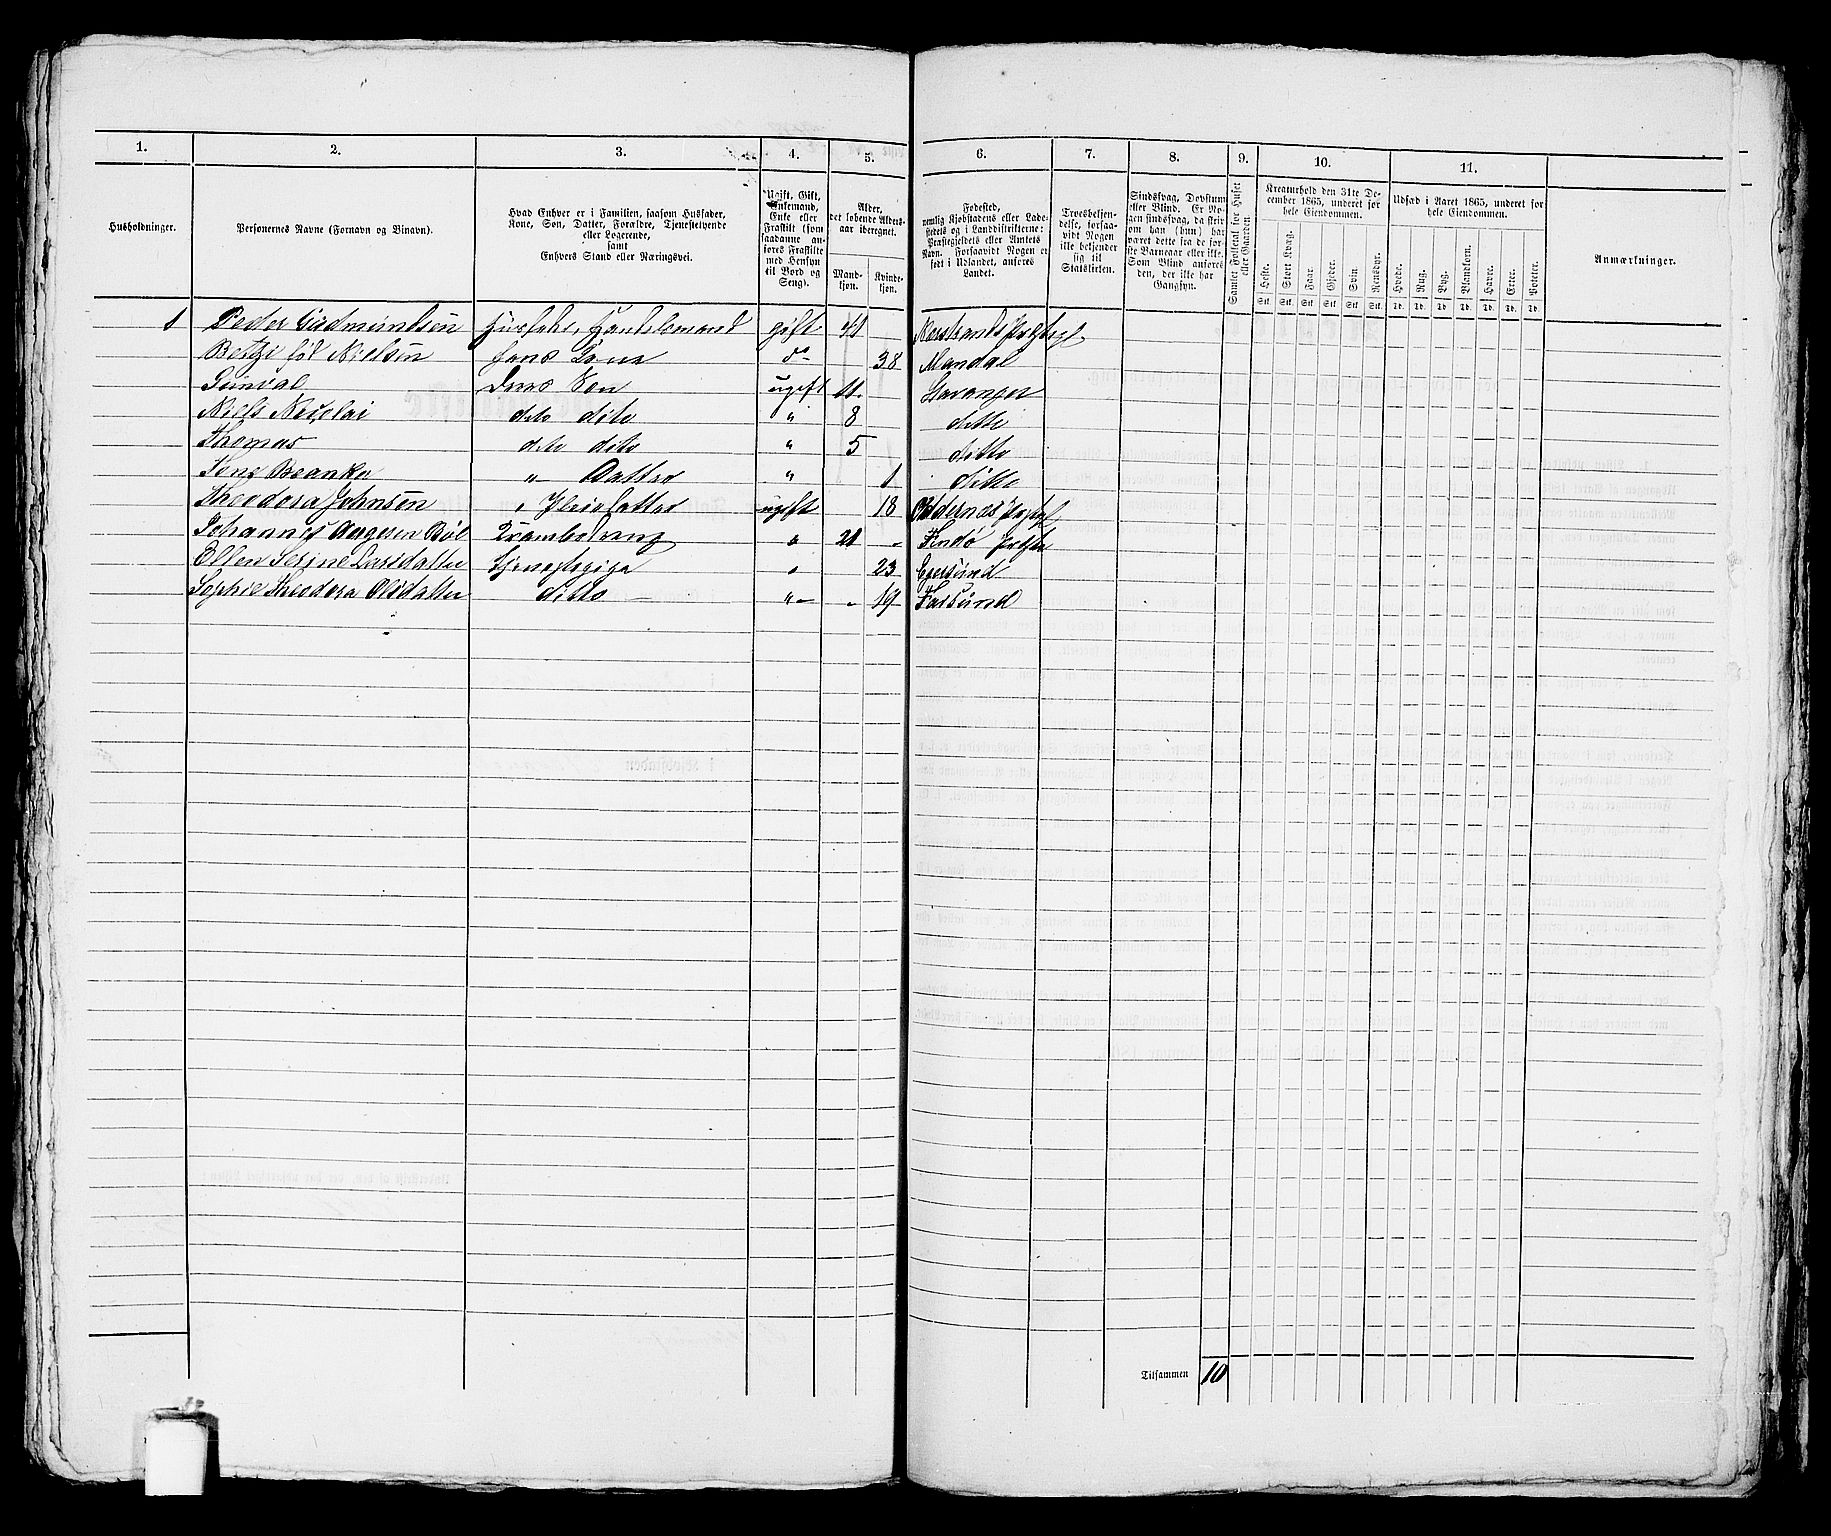 1. 2. 3. 4. 5. 6. 7. 8. 9. 10. 11.
Husholdninger.
Personernes Navne (Fornavn og Binavn).
Hvad Enhver er i Familien, saasom Husfader, Kone, Søn, Datter, Forældre, Tjenestetyende eller Logerende, samt Enhvers Stand eller Næringsvei.
Ugift, Gift, Enkemand, Enke eller Fraskilt (som saadanne anføres Fraskilte med Hensyn til Bord og Seng).
Alder, det løbende Alders-aar iberegnet.
Mand-kjøn. Kvinde-kjøn.
Fødested, nemlig Kjøbstadens eller Ladestedets og i Landdistrikterne: Præstegjeldets eller Amtets Navn. Forsaavidt Nogen er født i Udlandet, anføres Landet.
Troesbekjendelse, forsaavidt Nogen ikke bekjender sig til Statskirken.
Sindssvag, Døvstum eller Blind. Er Nogen sindssvag, da skrives om han (hun) har været dette fra de første Barneaar eller ikke. Som Blind anføres den, der ikke har Gangsyn.
Samlet Folketal for Huset eller Gaarden
Kreaturhold den 31te December 1865, underet for hele Eiendommen.
Heste. Stort Kvæg. Faar. Gjeder. Svin. Rensdyr.
Stk. Stk. Stk. Stk. Stk. Stk.
Udsæd i Aaret 1865, underet for hele Eiendommen.
Hvede. Rug. Byg. Blandkorn. Havre. Erter. Poteter.
Td. Td. Td. Td. Td. Td. Td.
Anmærkninger.
1 Peder Gudmundsen Husfader, Handelsmand gift 41
Nielsen hans Kone do 38 Mandal
Sünval Deres Søn ugift 11. Stavanger
Niels Nicolai dito dito " 8 ditto
Thomas dito dito " 5 ditto
" Datter " 1 ditto
Theodora Johnsen " Pleiedatter ugift 18
Johannes Aagesen " 21 - Findø
Ellen Serine Larsdatter Tjenestepige " 23 Egersund
Sophie Theodora Olsdatter ditto " - 19 Farsund
Tilsammen 10